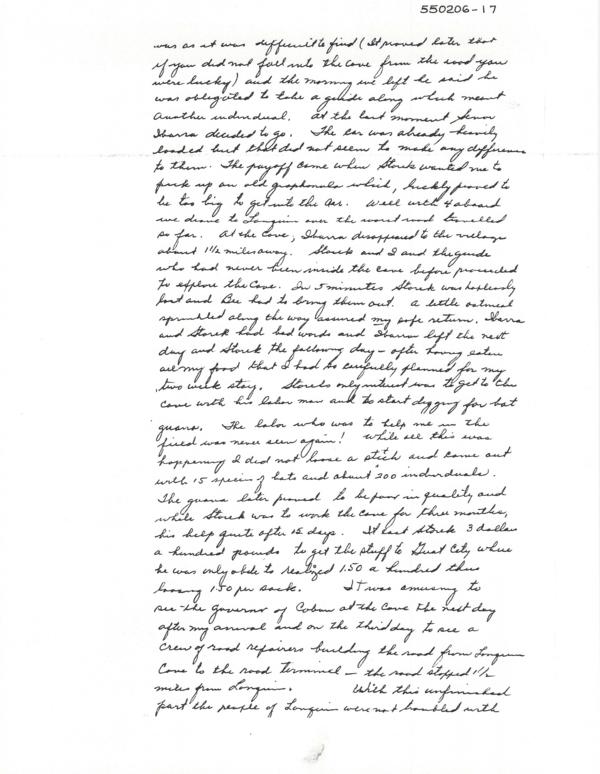 550206-17
was as it was difficult to find (It proved later that
if you did not fall into the cave from the road you
were lucky) and the morning we left he said he
was obligated to take a guide along which meant
another individual. At the last moment Senor
Ibarra decided to go. The car was already heavily
loaded but that did not seem to make any difference
to them. The payoff came when Storek wanted me to
pick up an old graphonola which, luckily proved to
be too big to get into the car. Well with 4 aboard
we drove to Lanquin over the worst road travelled
so far. At the Cave, Ibarra disappeared to the village
about 1 1/2 miles away. Storek and I and the guide
who had never been inside the cave before proceeded
to explore the Cave. In 5 minutes Storek was hoplessly
lost and Bee had to bring them out. A little oatmeal
sprinkled along the way assured my safe return. Ibarra
and Storek had bad words and Ibarra left the next
day and Storek the following day - after having eaten
all my food that I had so carefully planned for my
two week stay. Storeks only interest was to get to the
cave with his labor man and to start digging for bat
guano. The labor who was to help me in the
field was never seen again! While all this was
happening I did not loose a stich and came out
with 15 species of bats and about 200 individuals.
The guana later proved to be poor in quality and
while Storek was to work the cave for three months,
his help quite after 15 days. It cast Storek 3 dollars
a hundred pounds to get the stuff to Guat City where
he was only able to realized 1.50 a hundred thus
loosing 1.50 per sack. It was amusing to
see the governor of Coban at the Cave the next day
after my arrival and on the third day to see a
crew of road repairers building the road from Lanquin
Cave to the road terminel - the road stopped 1 1/2
miles from Lanquin. With this unfinished
part the people of Lanquin were not troubled with